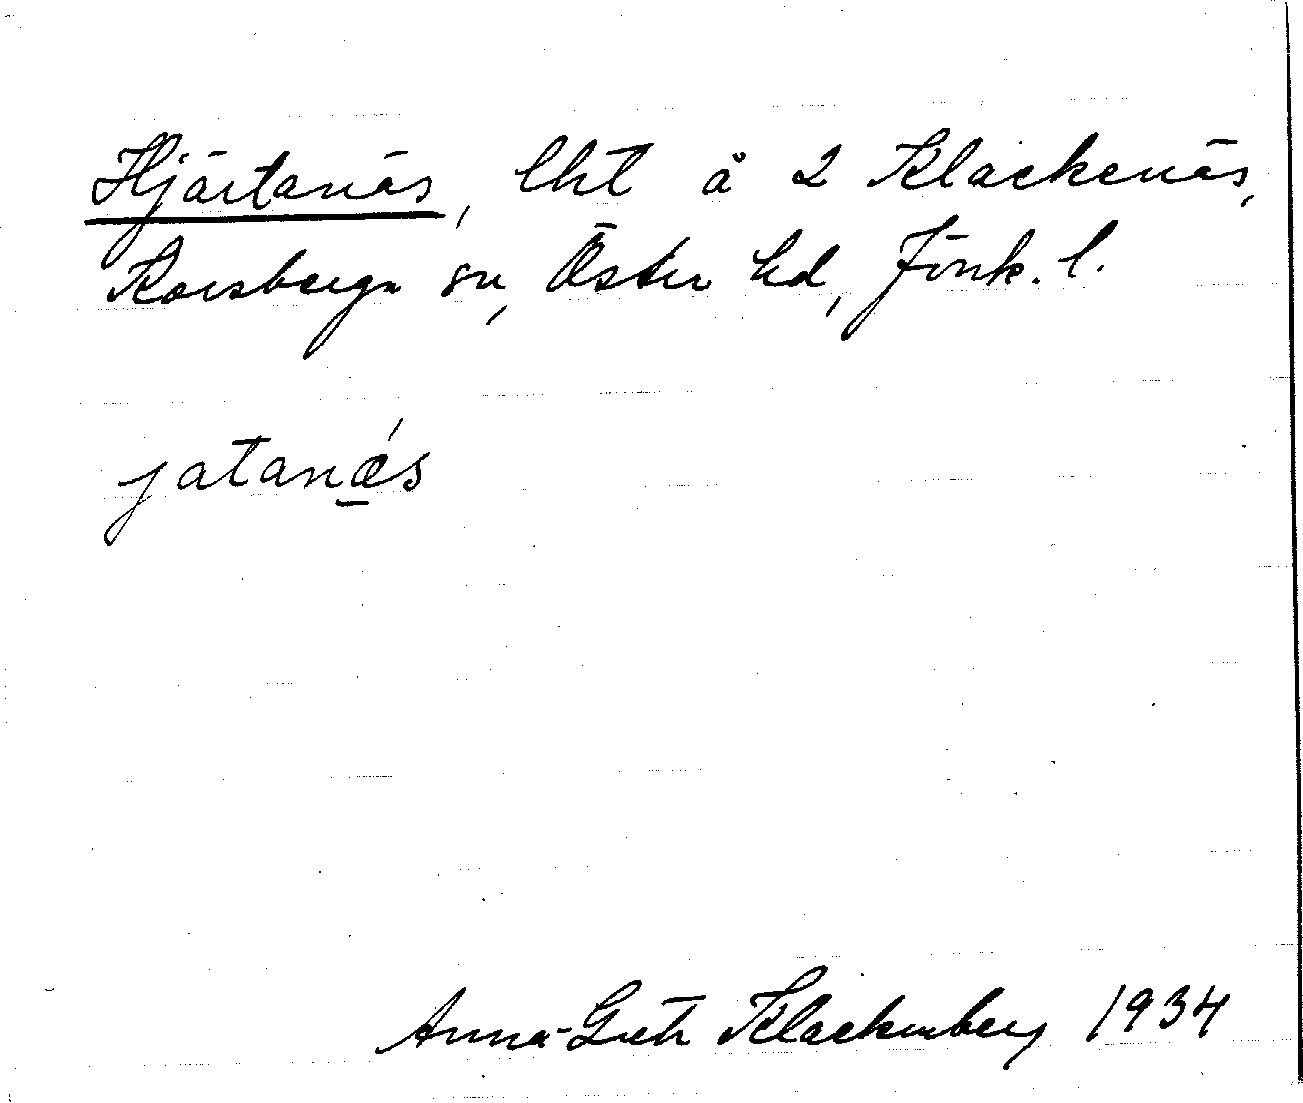 Hjärtanäs, lht å 2 Klackenäs,
Korsberga sn, Östra hd, Jönk. l.
jatanǽs
Anna-Greta Klackenberg 1934